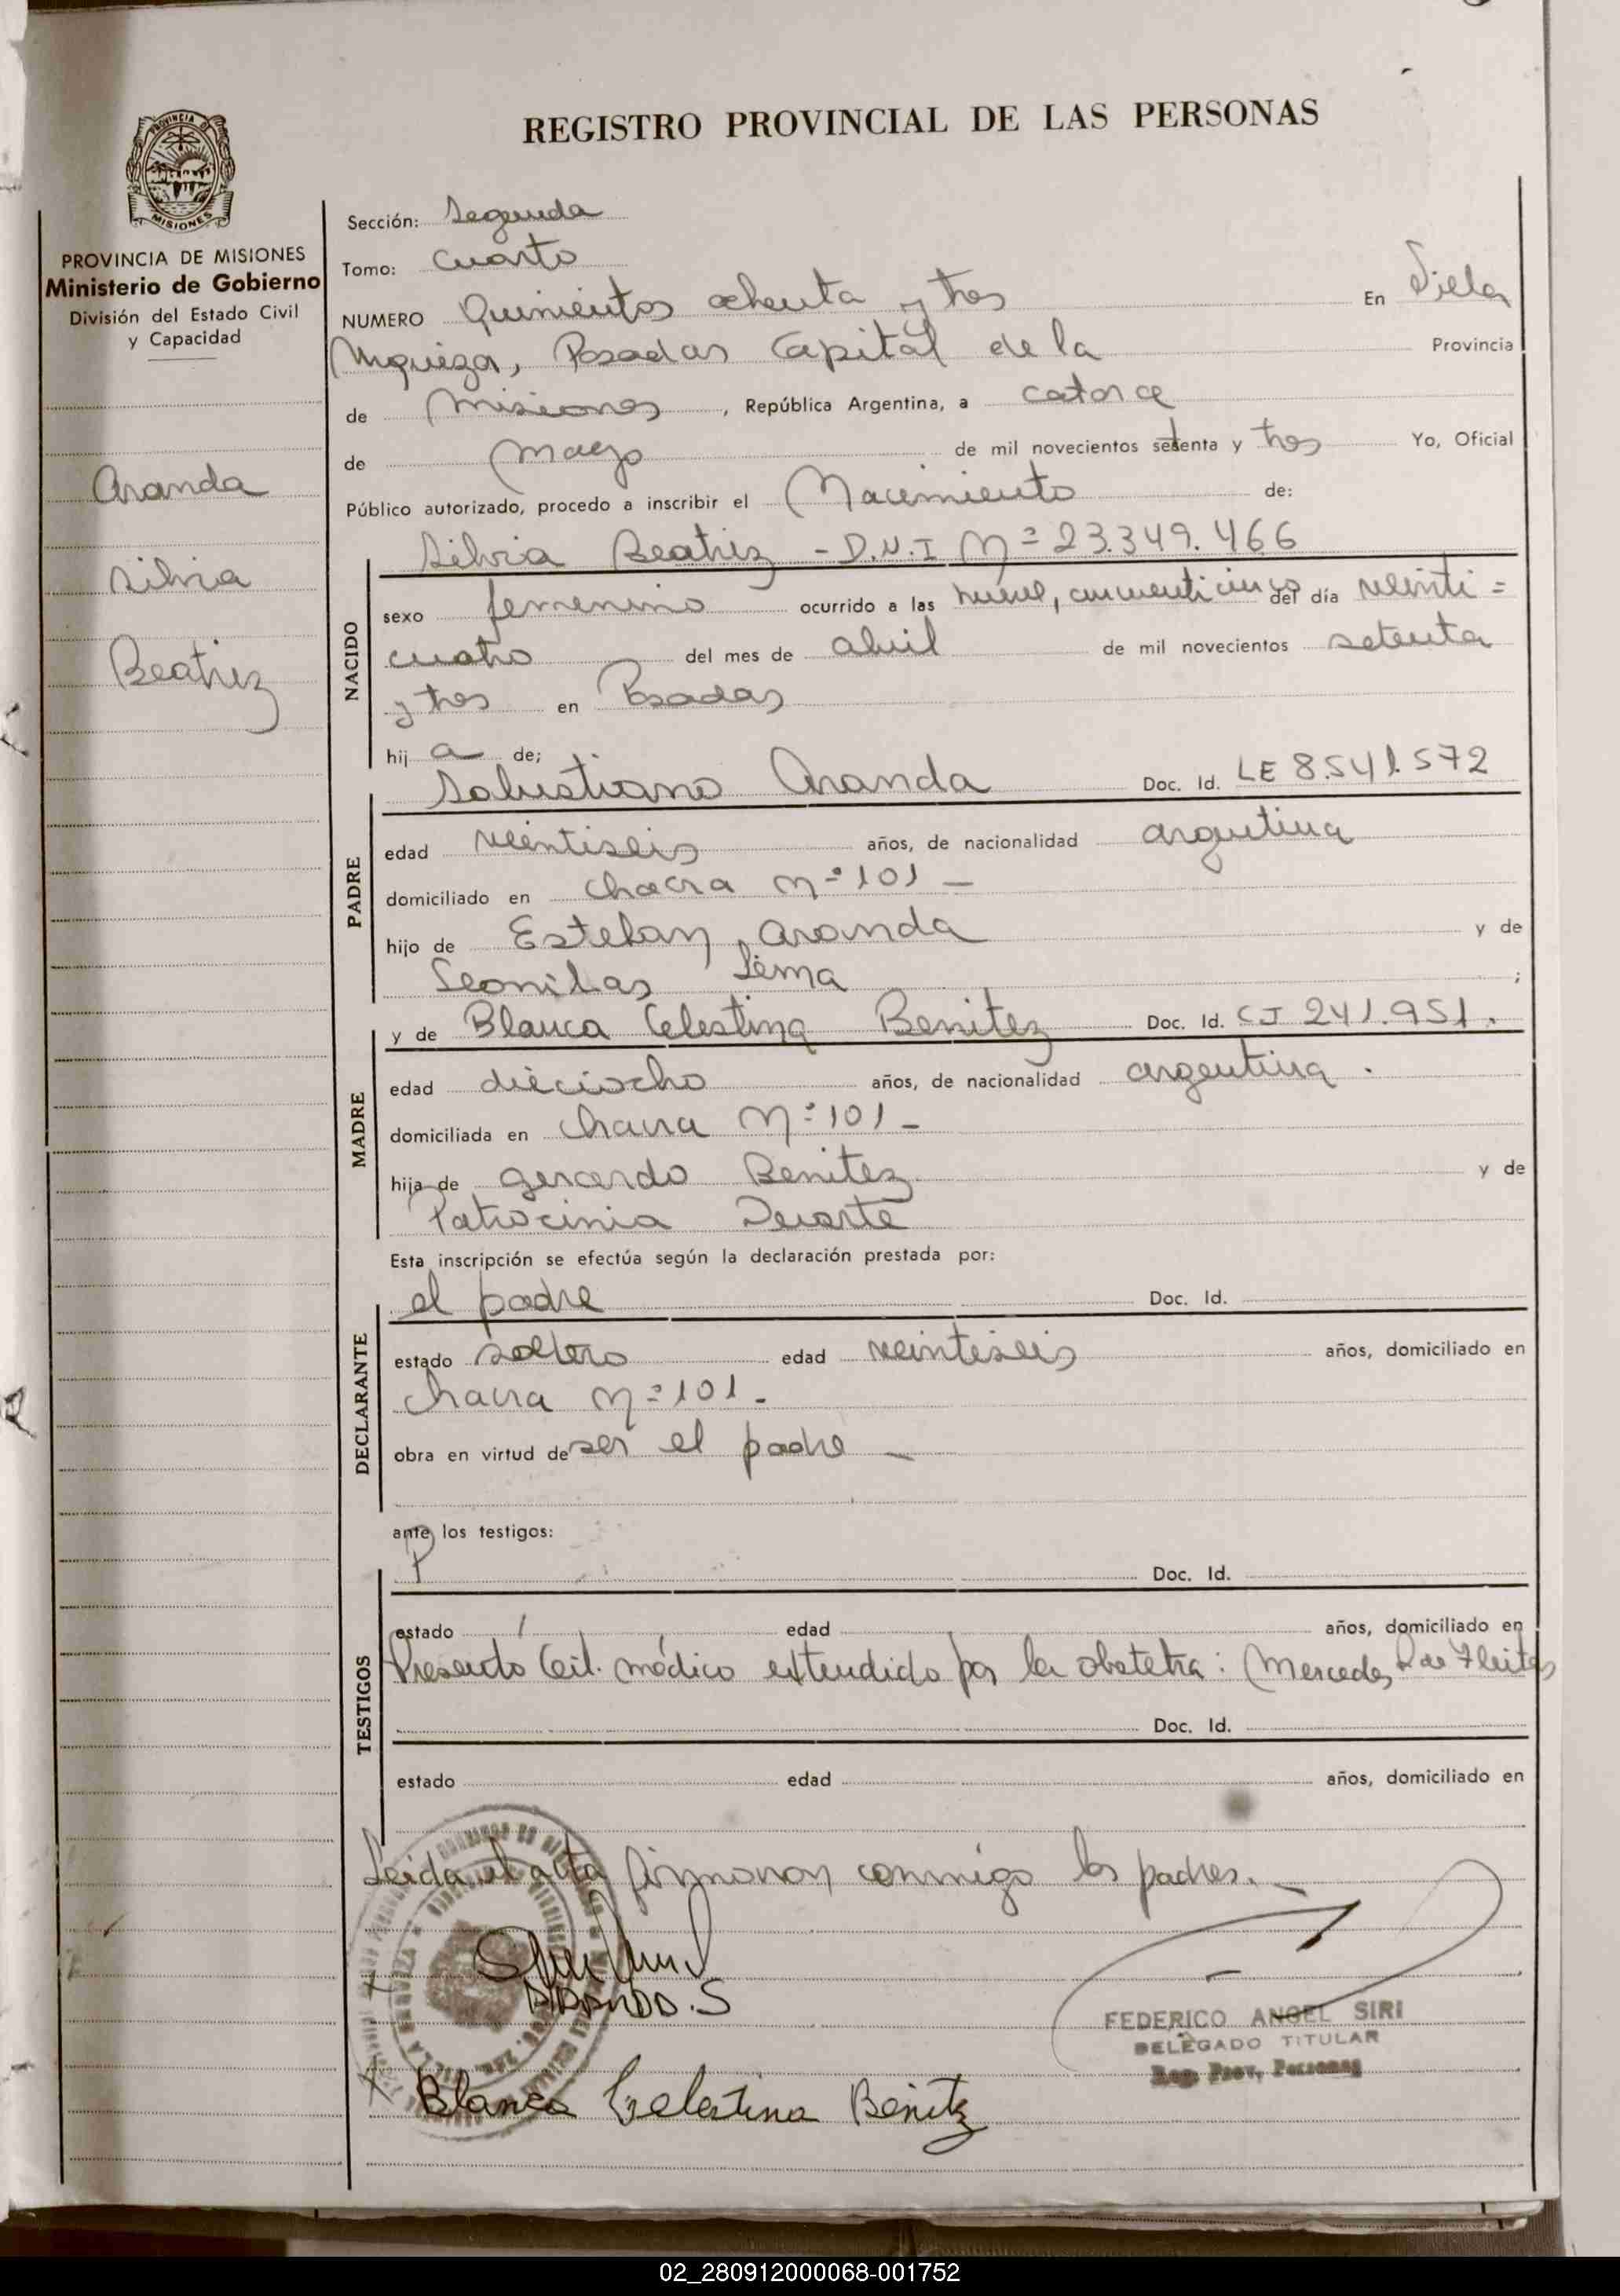 REGISTRO PROVINCIAL DE LAS PERSONAS
MISIONES
PROVINCIA DE MISIONES
Ministerio de Gobierno
División del Estado Civil
y Capacidad
Aranda
Silvia
Beatriz
Sección: Segunda
Tomo: Cuarto
NUMERO Quinientos ochenta y tres En Villa
Urquiza, Posadas Capital de la Provincia
de Misiones, República Argentina, a catorce
de mayo de mil novecientos setenta y tres Yo, Oficial
Público autorizado, procedo a inscribir el Nacimiento de:
Silvia Beatriz - D.N.I Nº 23.349.466
NACIDO
sexo femenino ocurrido a las nueve, cincuenticinco del día veinti=
cuatro del mes de abril de mil novecientos setenta
y tres en Posadas
hij a de;
Salustiano Aranda Doc. Id. LE 8.541.572
PADRE
edad veintiseis años, de nacionalidad argentina
domiciliado en chacra nº 101 -
hijo de Esteban Aranda y de
Leonilas Lema ;
y de Blanca Celestina Benitez Doc. Id. CI 241.951.
MADRE
edad dieciocho años, de nacionalidad argentina.
domiciliada en chacra Nº 101 -
hija de Gerardo Benitez y de
Patrocinia Duarte
Esta inscripción se efectúa según la declaración prestada por:
el padre Doc. Id.
DECLARANTE
estado soltero edad veintiseis años, domiciliado en
chacra nº 101 -
obra en virtud de ser el padre -
ante los testigos:
Doc. Id.
TESTIGOS
estado edad años, domiciliado en
Presentó Cert. médico extendido por la obstetra: Mercedes de Fleitas
Doc. Id.
estado edad años, domiciliado en
Leida el acta firmaron conmigo los padres. -
ARANDA. S
FEDERICO ANGEL SIRI
DELEGADO TITULAR
Reg. Prov. Personas
Blanca Celestina Benitez
02_280912000068-001752